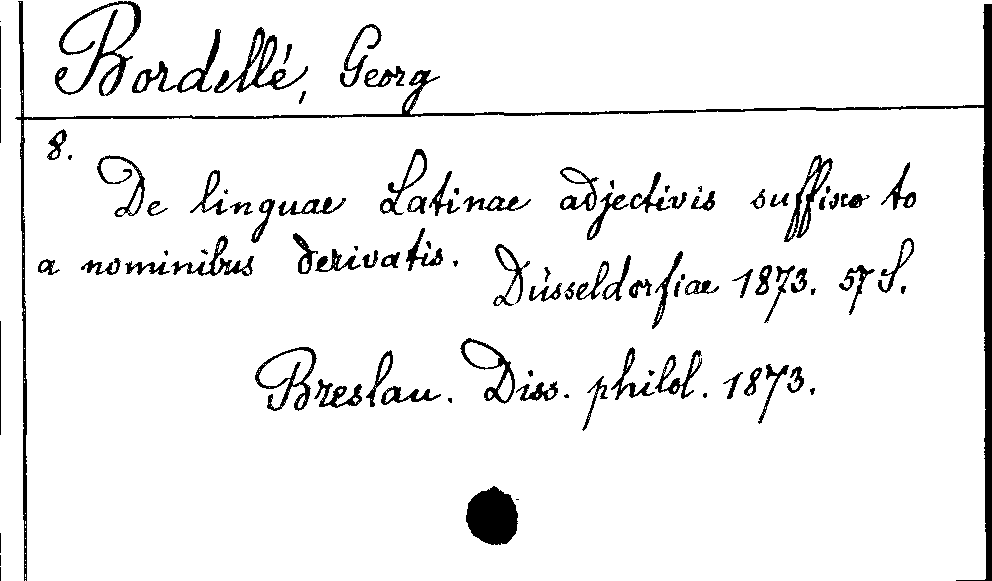 Bordellé, Georg
8.
De linguae Latinae adjectivis suffixo to
a nominibus derivatis.
Düsseldorfiae 1873. 57 S.
Breslau. Diss. philol. 1873.